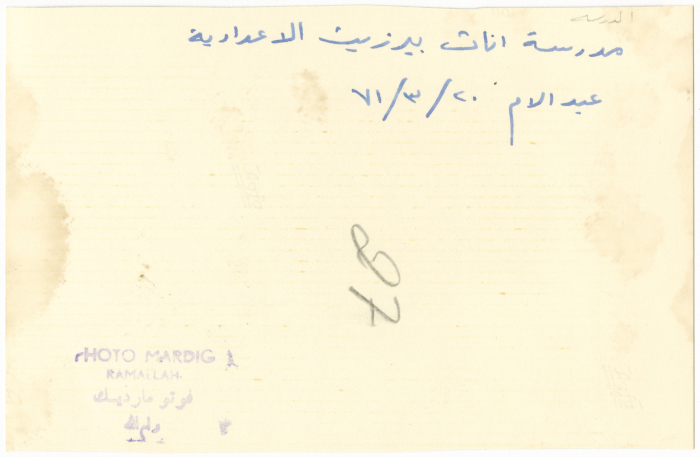 المدرسة
مدرسة اناث بيرزيت الاعدادية
عيد الام ٢٠/٣/٧١
97
PHOTO MARDIG
RAMALLAH
فوتو مارديك
رام الله